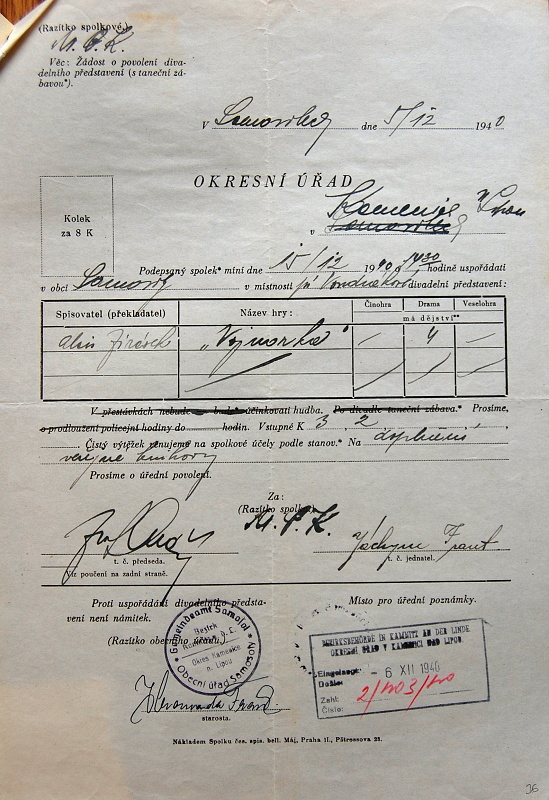 (Razítko spolkové.)
M. O. K.
Věc: Žádost o povolení diva-
delního představení (s taneční zá-
bavou*).
V dne 5/12 1940
OKRESNÍ ÚŘAD
Kolek
za 8 K
Kamenice n Lipou
v
Podepsaný spolek* míní dne 15/12 1940 o 1930 hodině uspořádati
v obci v místnosti divadelní představení:
Spisovatel (překladatel) Název hry: Činohra Drama Veselohra
má dějství**
Alois Jirásek „Vojnarka" — 4 —
V přestávkách nebude — bude* účinkovati hudba. Po divadle taneční zábava.* Prosíme,
o prodloužení policejní hodiny do hodin. Vstupné K 3, 2
Čistý výtěžek věnujeme na spolkové účely podle stanov.* Na doplnění
veřejné knihovny
Prosíme o úřední povolení.
Za:
(Razítko spolkové)
M. O. K.
Jáchym Frant
t. č. předseda. t. č. jednatel.
Viz poučení na zadní straně.
Proti uspořádání divadelního představení není námitek.
Místo pro úřední poznámky.
(Razítko obecního úřadu.)
Gemeindeamt
Bezirk
Okres Kamenice
n. Lipou
Obecní úřad
BEZIRKSBEHÖRDE IN KAMNITZ AN DER LINDE
OKRESNÍ ÚŘAD V KAMENICI NAD LIPOU
Eingelangt:
Došlo: - 6 XII 1940
Zahl:
Číslo:
starosta.
Nákladem Spolku čes. spis. bell. Máj, Praha II., Pštrossova 23.
36